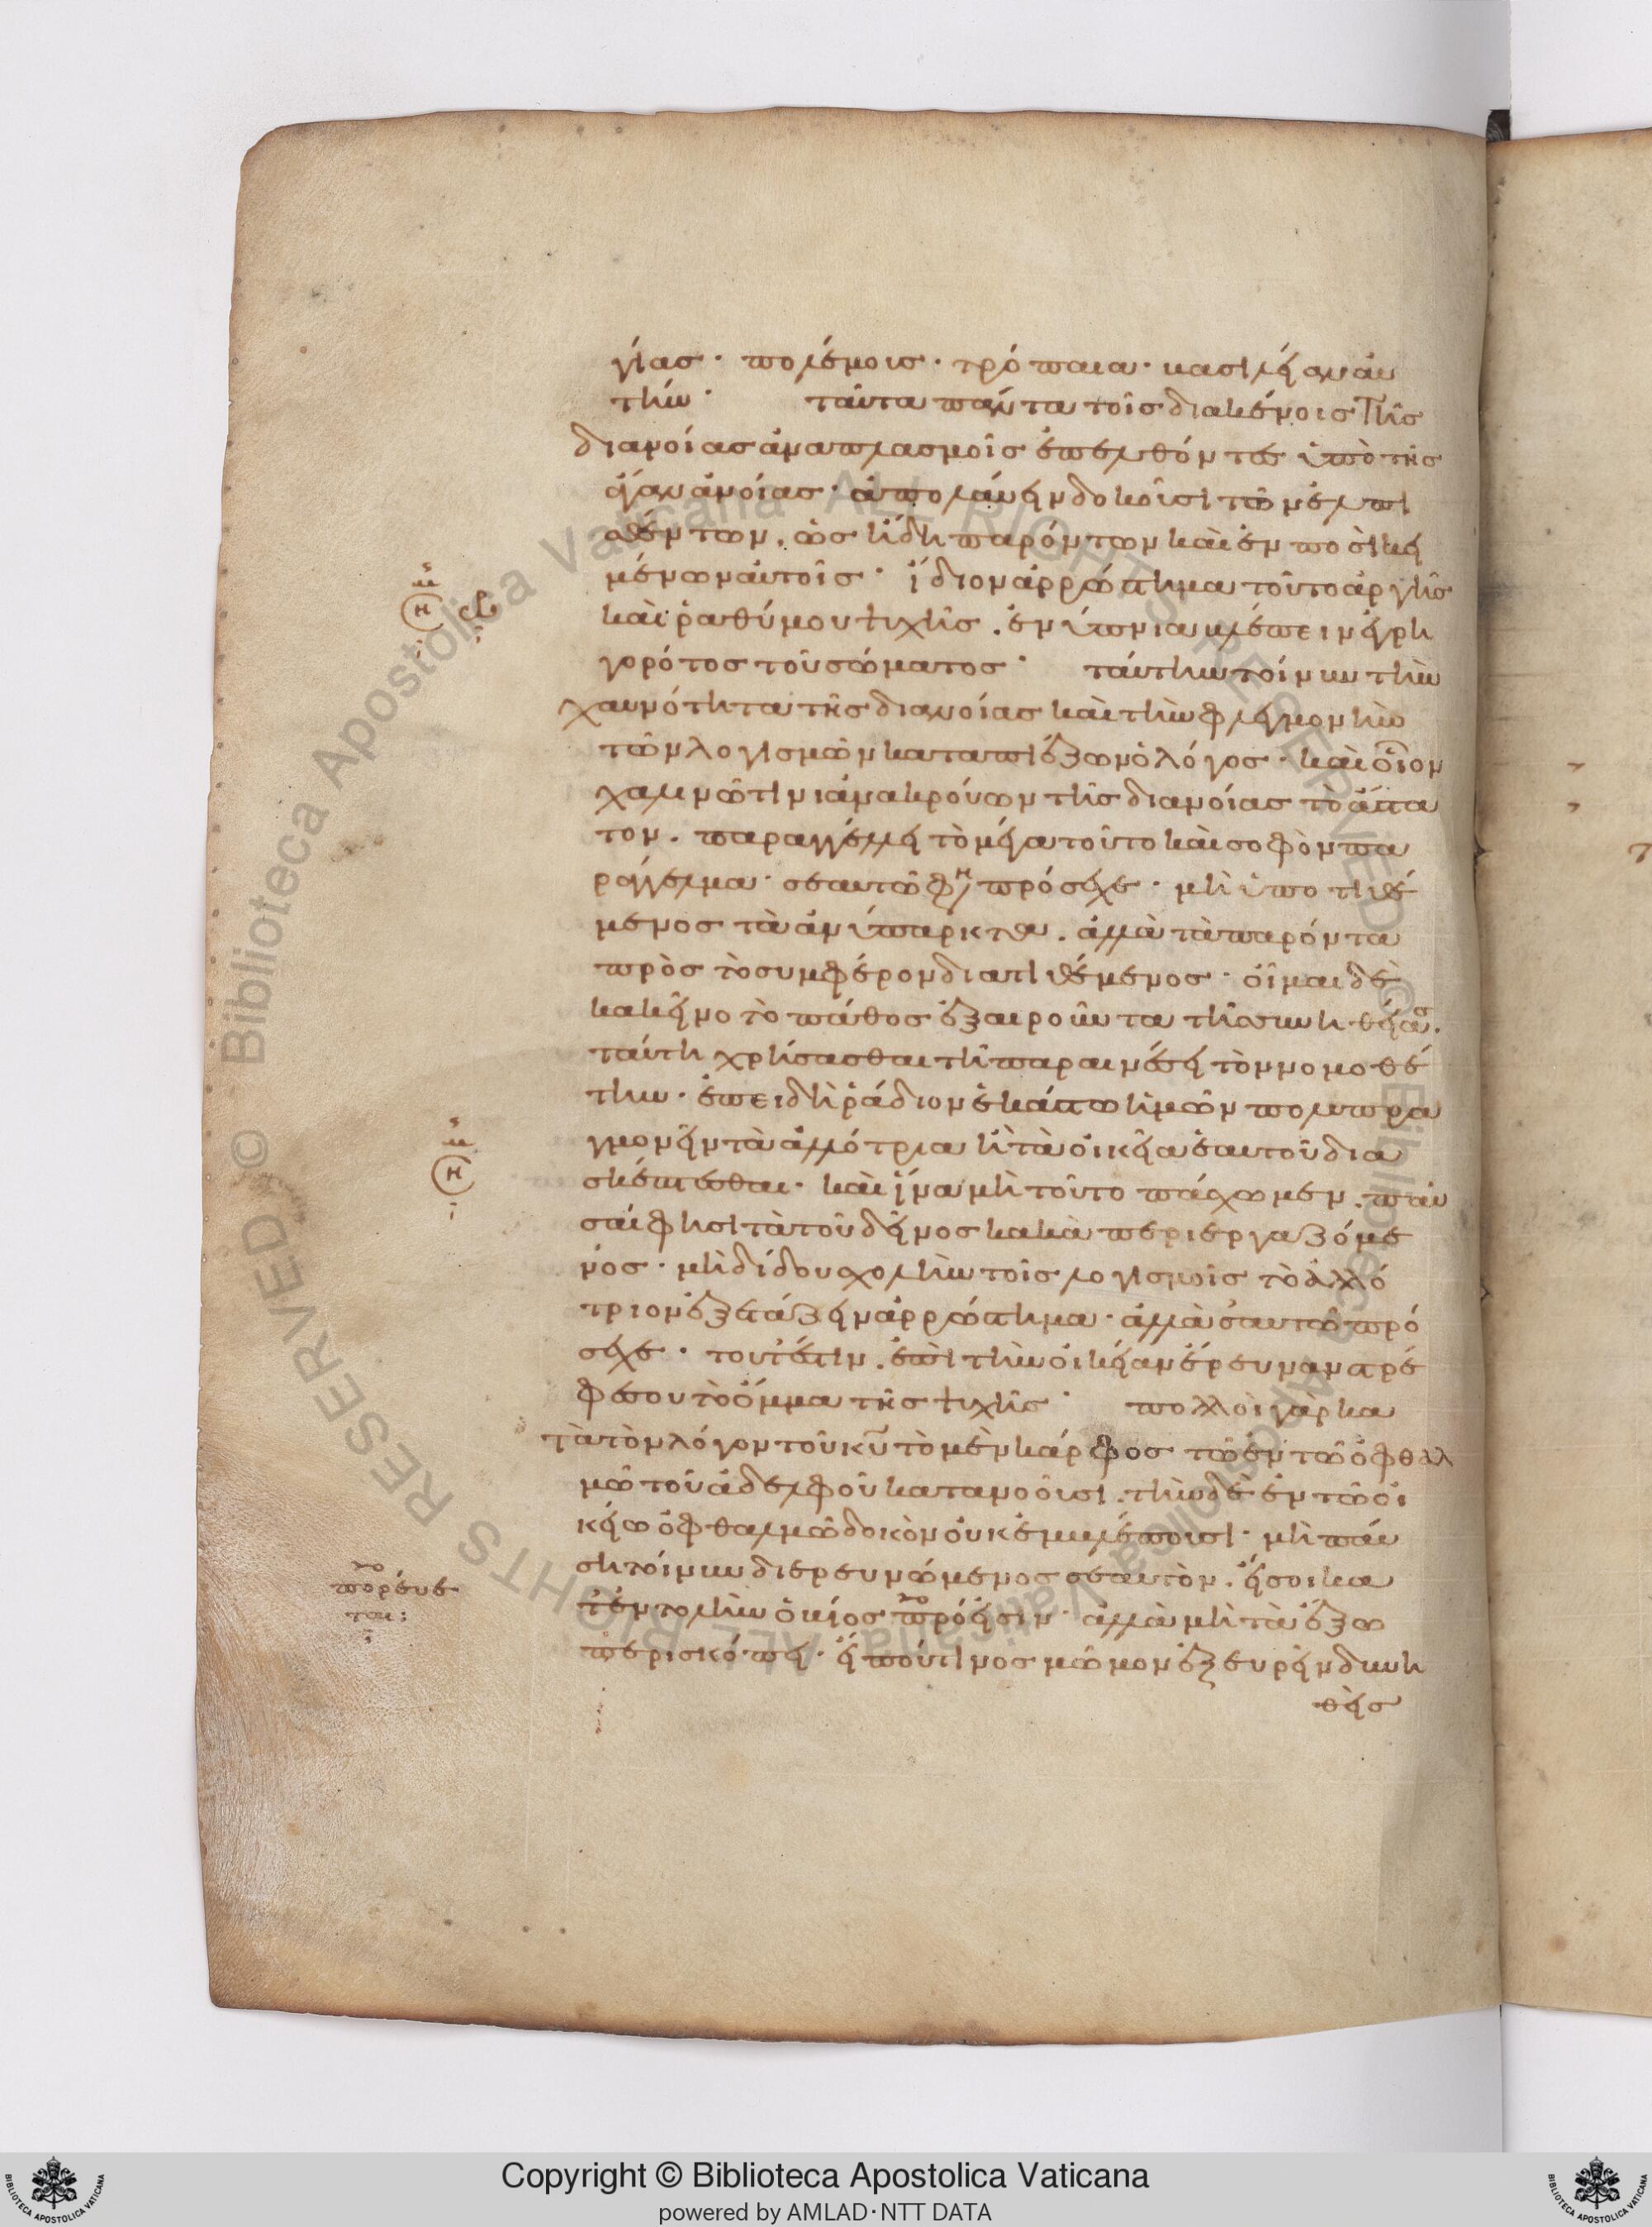 γίας · πολέμοις · τρόπαια · βασιλείαν αὐ
τήν · ταῦτα πάντα τοῖς διακένοις τῆς
διανοίας ἀναπλασμοῖς ἐπελθόντες ὑπὸ τῆς
ἄγαν ἀνοίας · ἀπολαύειν δοκοῦσι τῶν ἐλπι
σθέντων . ὡς ἤδη παρόντων καὶ ἐν ποσὶ κει
μένων αὐτοῖς · ἴδιον ἀρρώστημα τοῦτο ἀργῆς
καὶ ῥαθύμου ψυχῆς . ἐνύπνια βλέπειν ἐγρη
γορότος τοῦ σώματος · ταύτην τοίνυν τὴν
χαυνότητα τῆς διανοίας καὶ τὴν φλεγμονὴν
τῶν λογισμῶν καταπιέζων ὁ λόγος · καὶ οἷον
χαλινῷ τινι ἀνακρούων τῆς διανοίας τὸ ἄστα
τον . παραγγέλλει τὸ μέγα τοῦτο καὶ σοφὸν πα
ράγγελμα · σεαυτῷ φη πρόσεχε · μὴ ὑποτιθέ
μενος τὰ ἀνύπαρκτα . ἀλλὰ τὰ παρόντα
πρὸς τὸ συμφέρον διατιθέμενος · οἶμαι δὲ
κἀκεῖνο τὸ πάθος ἐξαιροῦντα τῆς συνηθείας .
ταύτῃ χρήσασθαι τῇ παραινέσει τὸν νομοθέ
την · ἐπειδὴ ῥάδιον ἑκάστῳ ἡμῶν πολυπρα
γμονεῖν τὰ ἀλλότρια ἢ τὰ οἰκεῖα ἑαυτοῦ δια
σκέπτεσθαι · καὶ ἵνα μὴ τοῦτο πάσχωμεν . παῦ
σαί φησι τὰ τοῦ δεῖνος κακὰ περιεργαζόμε
νος · μὴ δίδου σχολὴν τοῖς λογισμοῖς τὸ ἀλλό
τριον ἐξετάζειν ἀρρώστημα · ἀλλὰ σαυτῷ πρό
σεχε · τουτέστιν . ἐπὶ τὴν οἰκείαν ἔρευναν στρέ
φε σου τὸ ὄμμα τῆς ψυχῆς · πολλοὶ γὰρ κα
τὰ τὸν λόγον τοῦ κυ τὸ μὲν κάρφος τὸ ἐν τῷ ὀφθαλ
μῷ τοῦ ἀδελφοῦ κατανοοῦσι . τὴν δὲ ἐν τῷ οἰ
κείῳ ὀφθαλμῷ δοκὸν οὐκ ἐμβλέπουσι · μὴ παύ
σῃ τοίνυν διερευνώμενος σεαυτὸν . εἴ σοι κα
τ᾽ ἐντολὴν ὁ βίος πρόεισιν · ἀλλὰ μὴ τὰ ἔξω
περισκόπει · εἴ πού τινος μῶμον ἐξευρεῖν δυνη
θείης
γρ
πορεύε
ται :